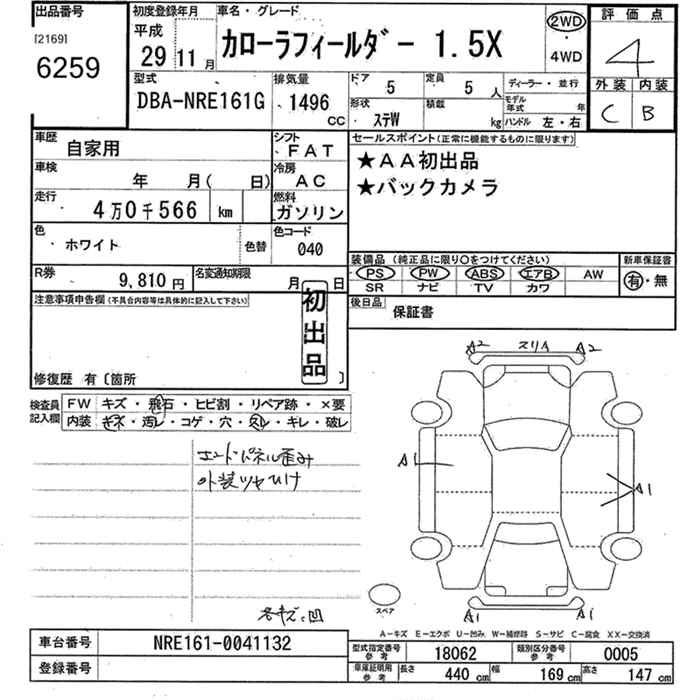 出品番号
[2169]
6259
初度登録年月
平成
29 11 月
車名・グレード
カローラフィールダー 1.5X
2WD
・
4WD
評価点
4
外装 内装
C B
型式
DBA-NRE161G
排気量
1496
CC
ドア
5
定員
5 人
ディーラー・並行
形状
ステW
積載
kg
モデル年式 年
ハンドル 左・右
車歴
自家用
シフト
FAT
車検
年 月( 日)
冷房
AC
走行
4万0千566 km
燃料
ガソリン
色
ホワイト
色替
色コード
040
R券
9,810 円
名変通知期限
月 日
セールスポイント(正常に機能するものに限ります)
★AA初出品
★バックカメラ
装備品 (純正品に限り○をつけてください)
PS PW ABS エアB AW
SR ナビ TV カワ
新車保証書
有・無
後日品
保証書
注意事項申告欄(不具合内容等は具体的に記入して下さい)
初出品
修復歴 有〔箇所 〕
検査員記入欄
FW キズ・飛石・ヒビ割・リペア跡・×要
内装 キズ・汚レ・コゲ・穴・欠レ・キレ・破レ
エンドパネル歪み
外装ツヤひけ
各キズ、凹
A2 スリA A2
A1
A1
A1 A1
スペア
A-キズ E-エクボ U-凹み W-補修跡 S-サビ C-腐食 XX-交換済
車台番号
NRE161-0041132
登録番号
型式指定番号参考
18062
類別区分番号参考
0005
車庫証明用参考
長さ 440 cm 幅 169 cm 高さ 147 cm